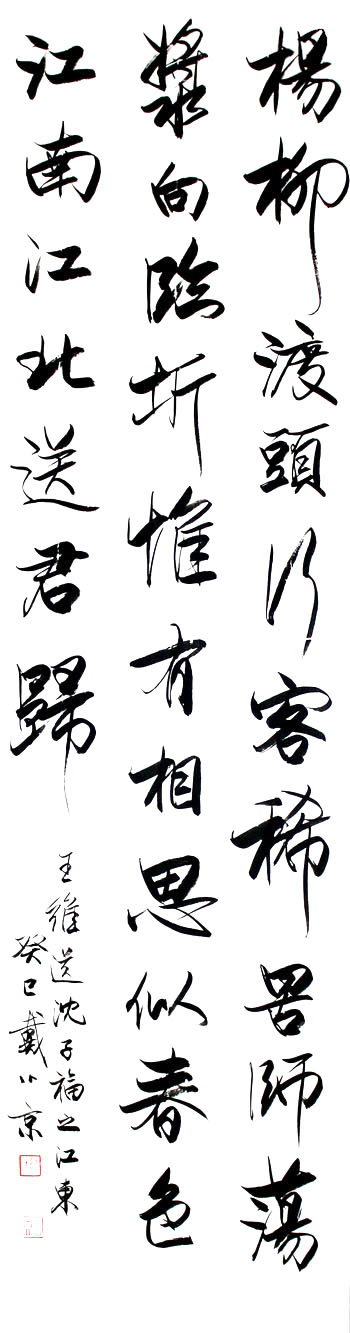 楊柳渡頭行客稀罟師蕩
槳向臨圻惟有相思似春色
江南江北送君歸
王維送沈子福之江東
癸巳戴小京